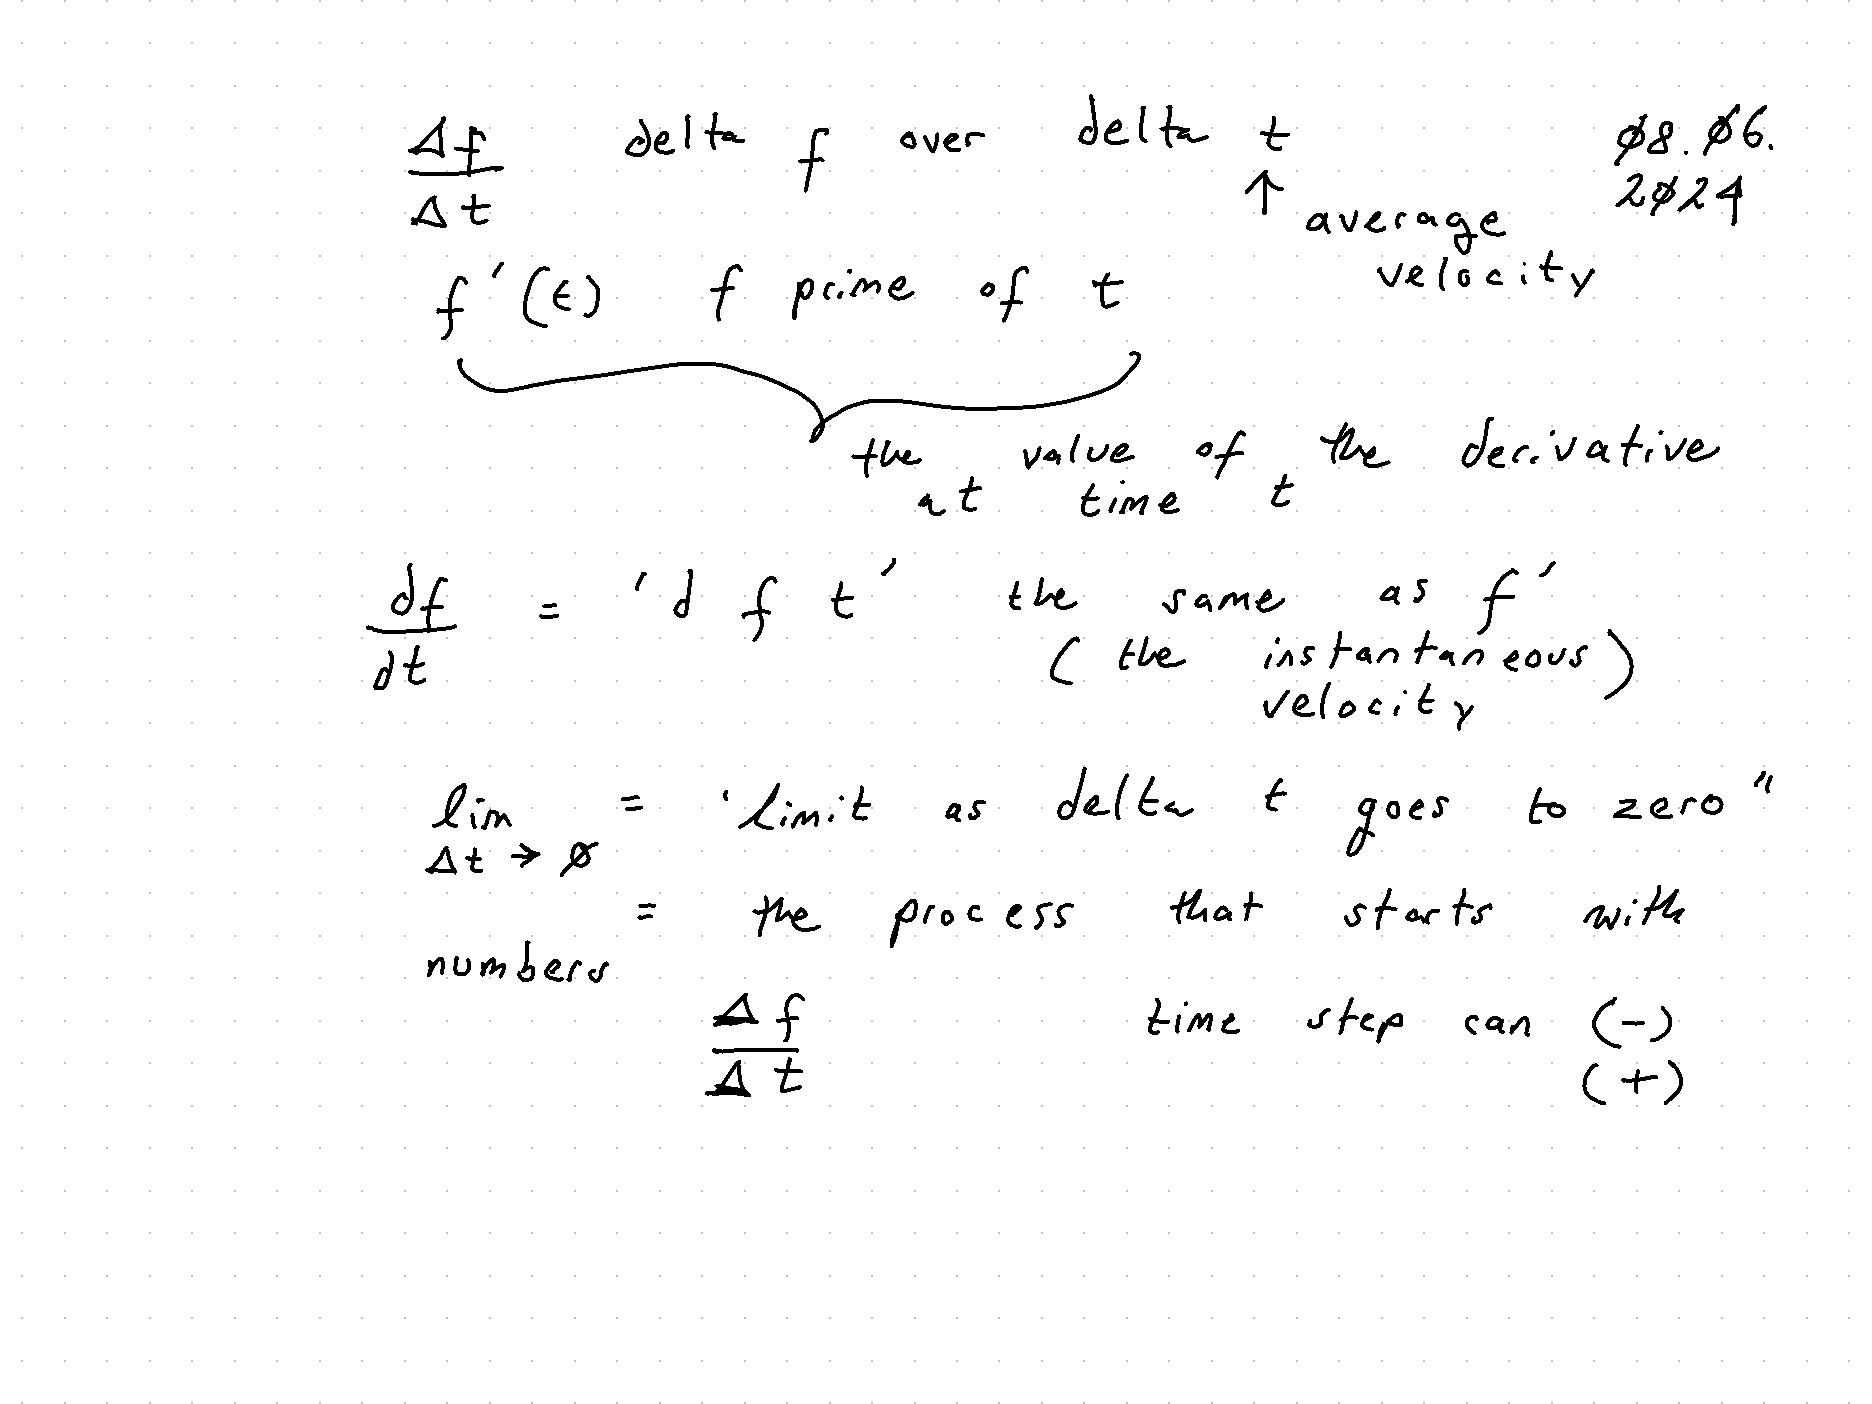 Δf/Δt delta f over delta t
↑ average velocity
Ø8.Ø6.
2Ø24
f'(t) f prime of t
the value of the derivative
at time t
df/dt = 'd f t' the same as f'
(the instantaneous
velocity)
lim Δt → Ø = 'limit as delta t goes to zero"
= the process that starts with
numbers
Δf/Δt time step can (-)
(+)